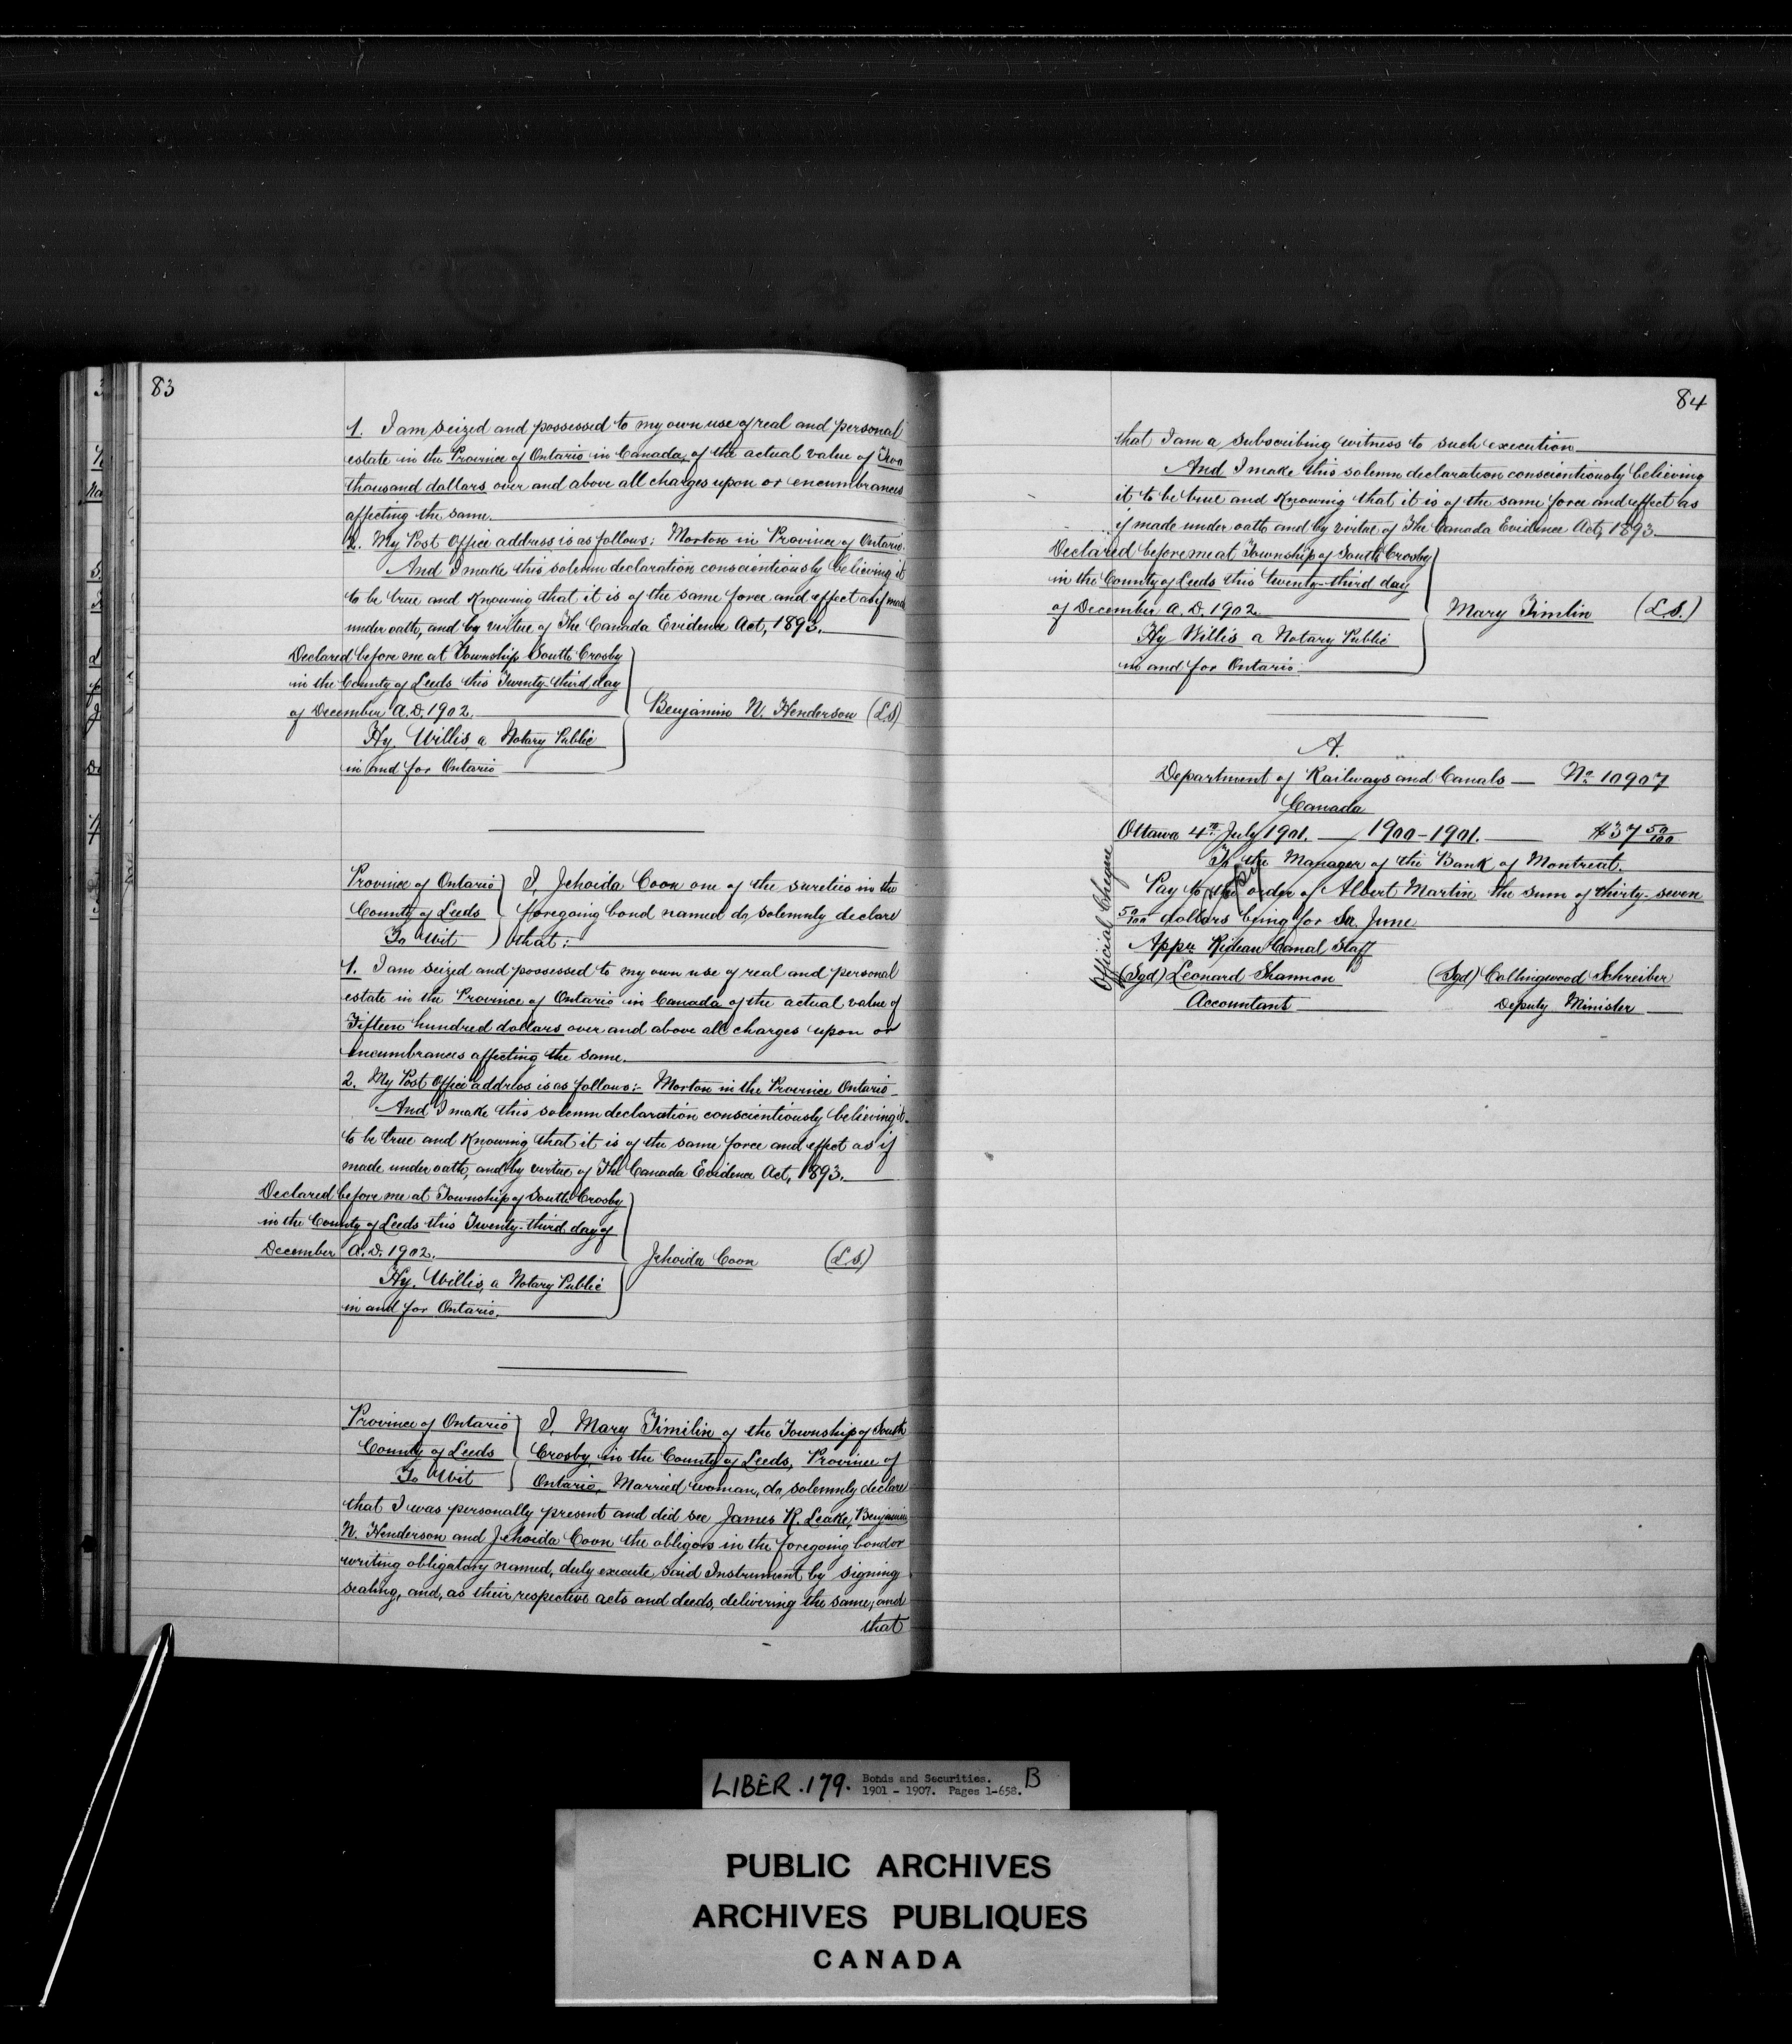 83
1. I am seized and possessed to my own use of real and personal
estate in the Province of Ontario in Canada, of the actual value of Two
thousand dollars over and above all charges upon or encumbrances
affecting the same.
2. My Post Office address is as follows: Morton in Province of Ontario.
And I make this solemn declaration conscientiously believing it
to be true and Knowing that it is of the same force and effect as if made
under oath, and by virtue of The Canada Evidence Act, 1893.
Declared before me at Township South Crosby
in the County of Leeds this Twenty-third day
of December A.D. 1902.
Benjamin N. Henderson (L.S)
Hy. Willis, a Notary Public
in and for Ontario
Province of Ontario
County of Leeds
To Wit
I, Jehoida Coon one of the sureties in the
foregoing bond named do solemnly declare
that:
1. I am seized and possessed to my own use of real and personal
estate in the Province of Ontario in Canada of the actual value of
Fifteen hundred dollars over and above all charges upon or
encumbrances affecting the same.
2. My Post Office address is as follows:- Morton in the Province Ontario
And I make this solemn declaration conscientiously believing it
to be true and Knowing that it is of the same force and effect as if
made under oath, and by virtue of The Canada Evidence Act, 1893.
Declared before me at Township of South Crosby
in the County of Leeds this Twenty-third day of
December A.D. 1902.
Jehoida Coon (L.S.)
Hy. Willis, a Notary Public
in and for Ontario.
Province of Ontario
County of Leeds
To Wit
I, Mary Timilin of the Township of South
Crosby in the County of Leeds, Province of
Ontario, Married woman, do solemnly declare
that I was personally present and did see James R. Leake, Benjamin
N. Henderson and Jehoida Coon the obligors in the foregoing bond or
writing obligatory named, duly execute said Instrument by signing
sealing, and, as their respective acts and deeds, delivering the same; and
that
84
that I am a subscribing witness to such execution
And I make this solemn declaration conscientiously believing
it to be true and Knowing that it is of the same force and effect as
if made under oath and by virtue of The Canada Evidence Act, 1893.
Declared before me at Township of South Crosby
in the County of Leeds this twenty-third day
of December A.D. 1902.
Mary Timlin (L.S.)
Hy Willis a Notary Public
in and for Ontario.
A.
Department of Railways and Canals — No 10907
Canada
Ottawa 4th July 1901. — 1900-1901. — $37 50/100
To the Manager of the Bank of Montreal.
Pay to the order of Albert Martin the sum of thirty-seven
50/100 dollars being for Sa. June
Appn Rideau Canal Staff
(Sgd) Leonard Shannon (Sgd) Collingwood Schreiber
Accountant Deputy Minister
Official Cheque
LIBER .179. Bonds and Securities. B
1901 - 1907. Pages 1-658.
PUBLIC ARCHIVES
ARCHIVES PUBLIQUES
CANADA